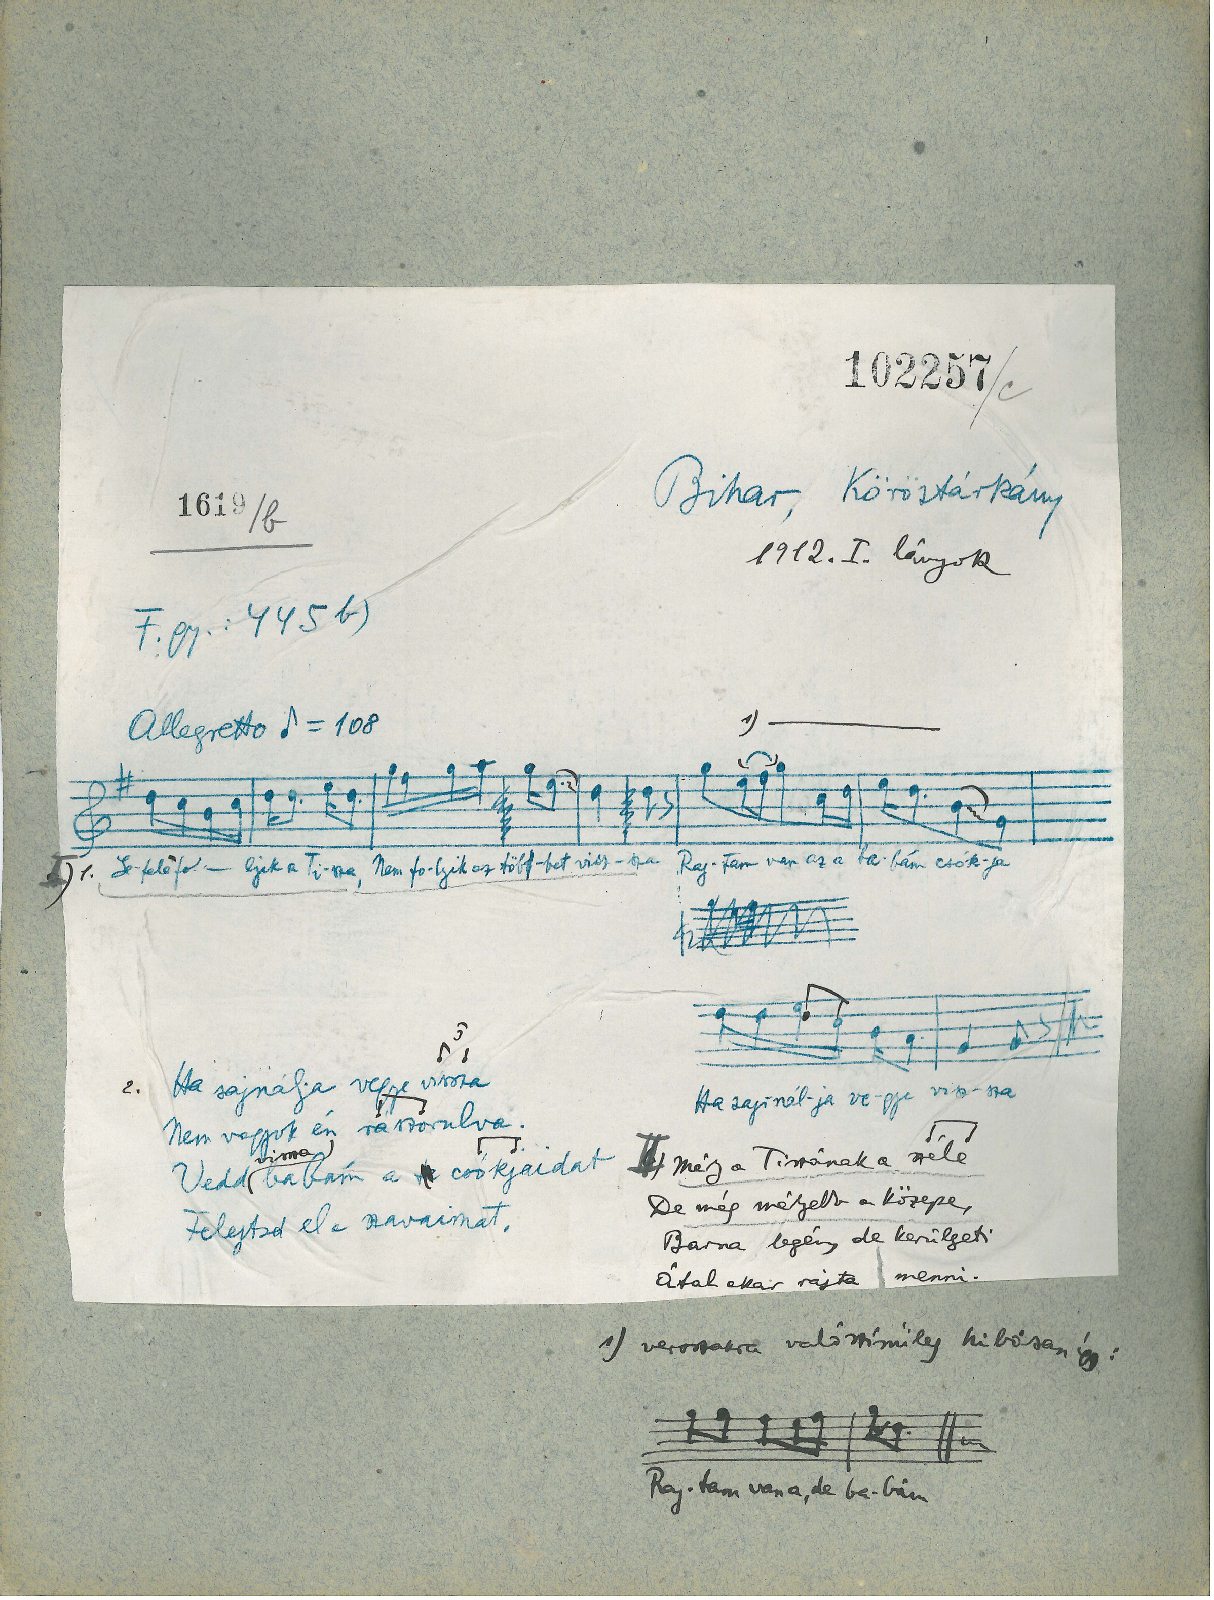 102257/c
Bihar, Köröstárkány
1619/b
1912. I. lányok
F. gy.: 445 b)
Allegretto ♪ = 108
1)
I) 1. Lefelé fo- lyik a Ti-sza, Nem fo-lyik az többet visz-sza Raj-tam van az a ba-bám csók-ja
Ha sajnál-ja ve-gye visz-sza
3
2. Ha sajnálja vegye vissza
Nem vagyok én rászorulva.
vissza
Vedd babám a csókjaidat
Felejtsd el a szavaimat.
II) Mély a Tiszának a széle
De még mélyebb a közepe,
Barna legény de kerülgeti
Által akar rajta menni.
1) versszakra valószínűleg hibásan így:
Raj-tam van a, de ba-bám